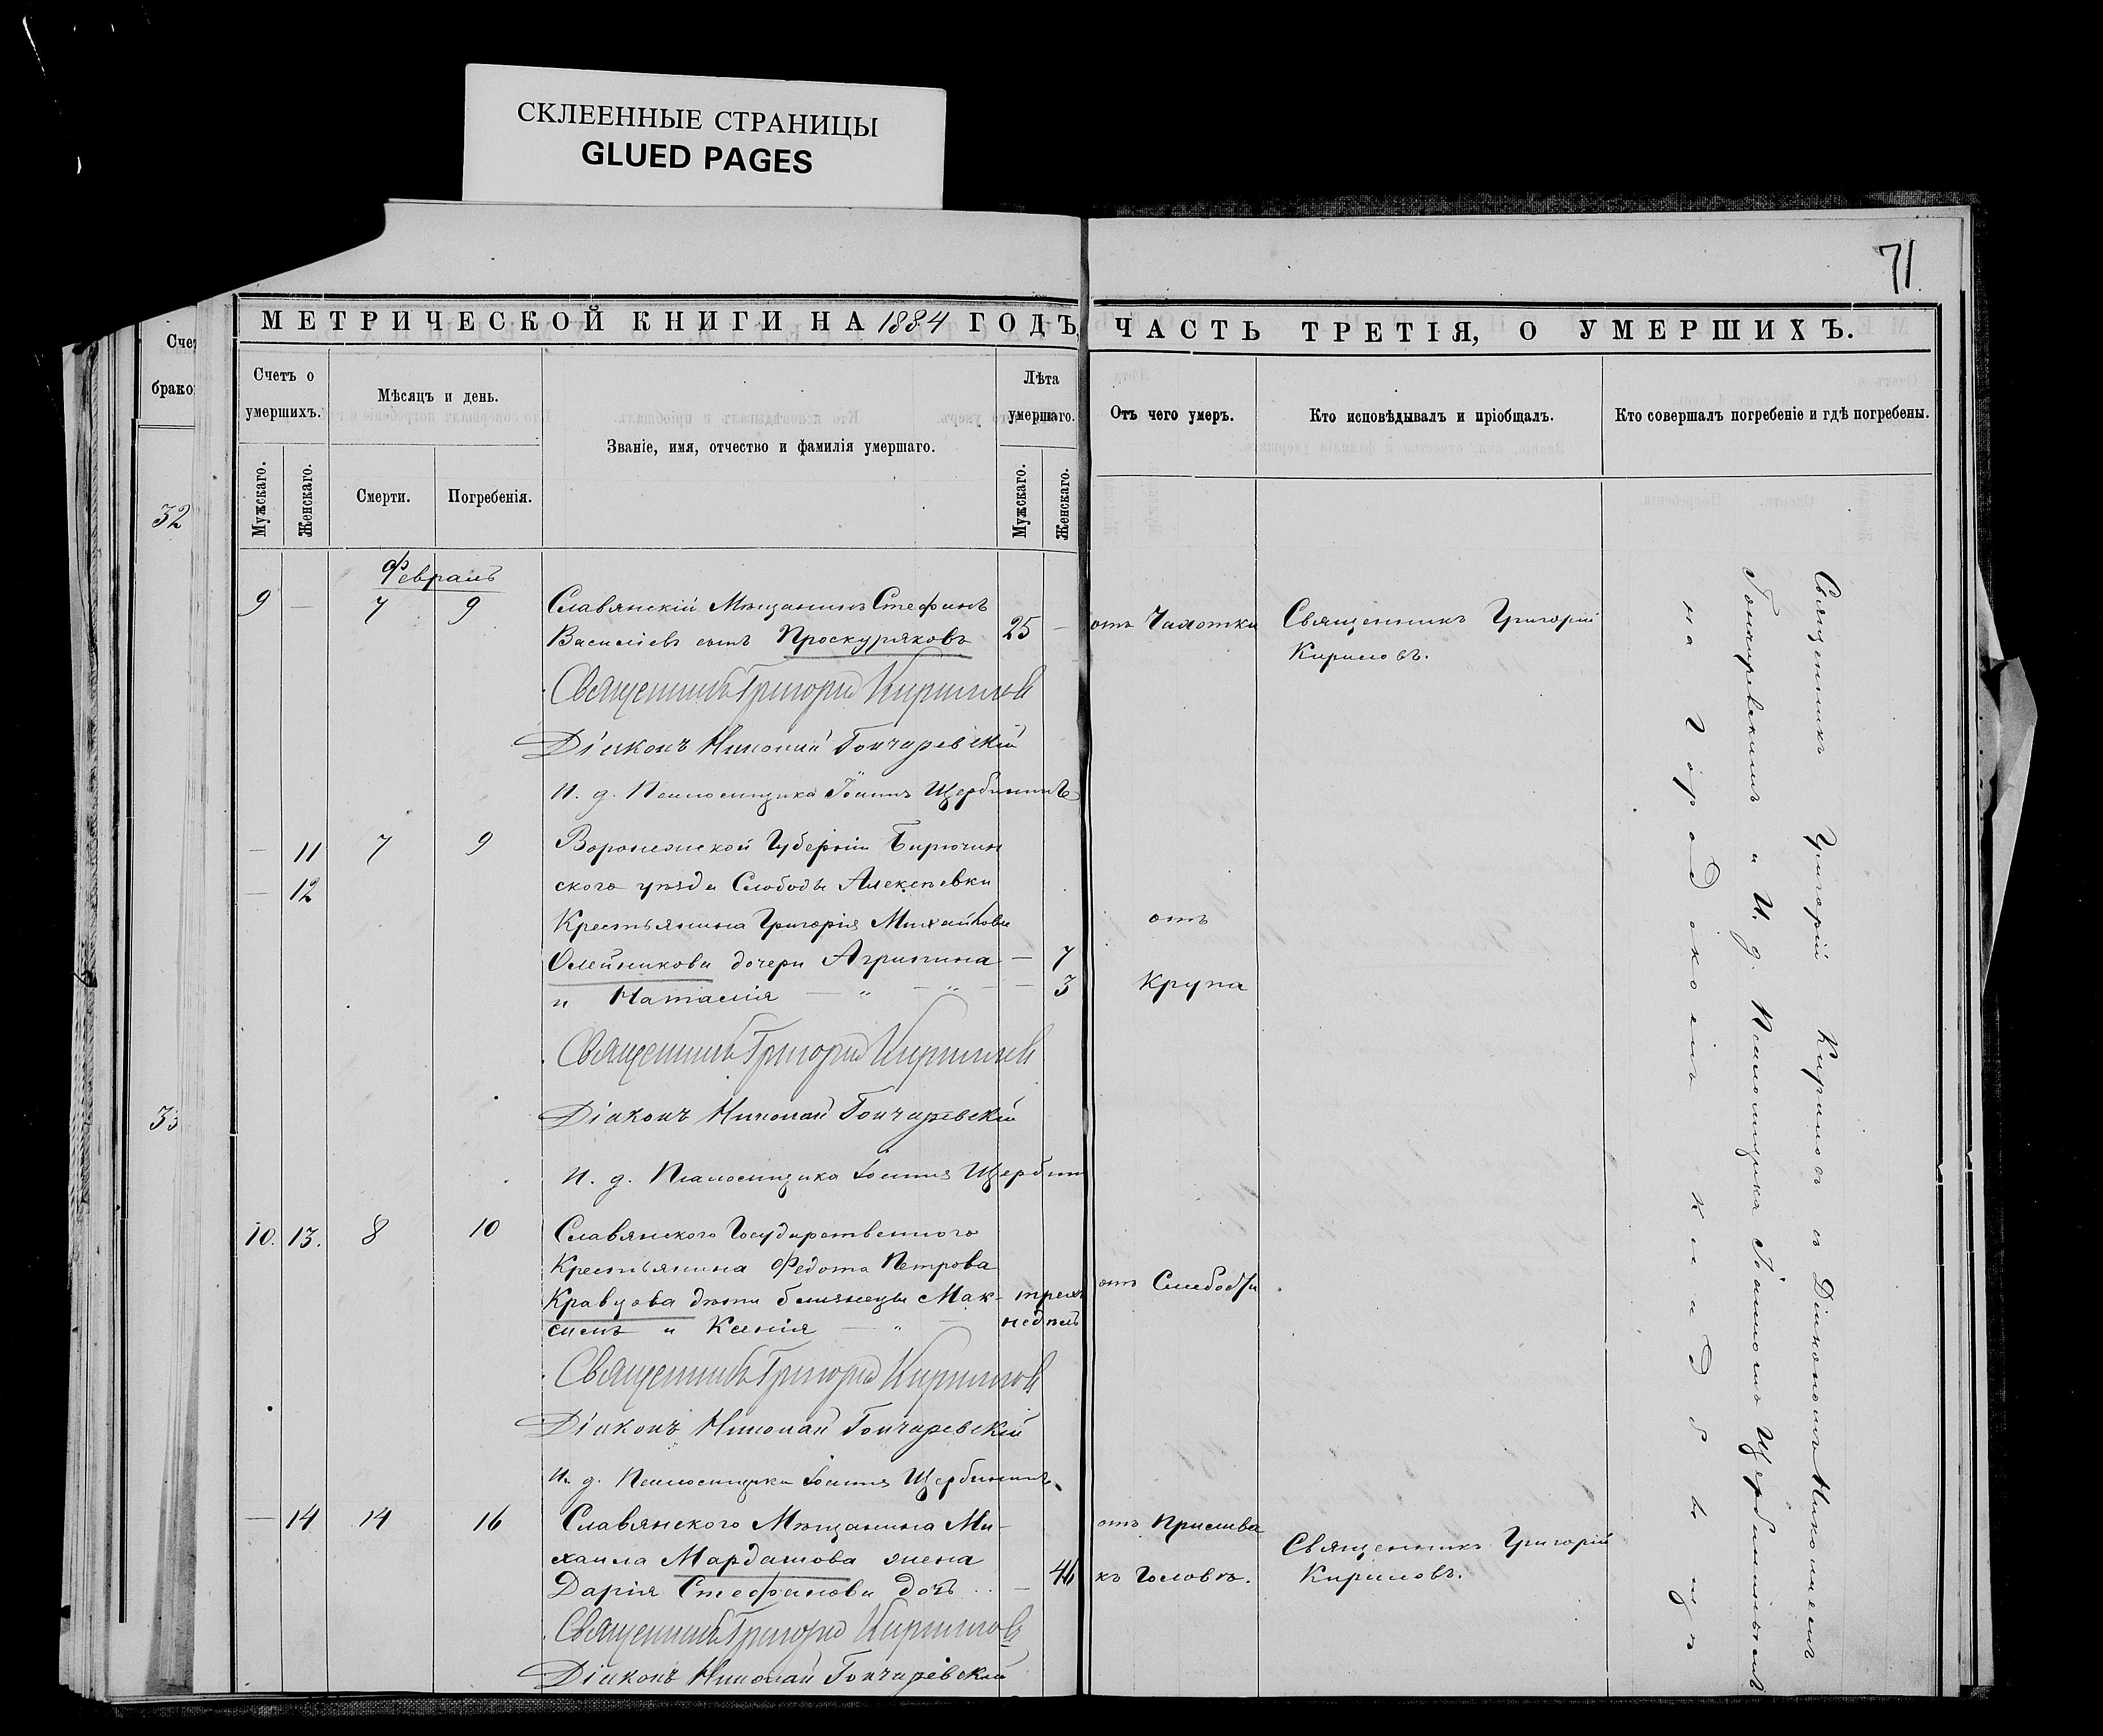 СКЛЕЕННЫЕ СТРАНИЦЫ
GLUED PAGES
71
МЕТРИЧЕСКОЙ КНИГИ НА 1884 ГОДЪ, ЧАСТЬ ТРЕТІЯ, О УМЕРШИХЪ.
Сче
брако
32
33
Счетъ о умершихъ.
Мужскаго.
Женскаго.
Мѣсяцъ и день.
Смерти.
Погребенія.
Званіе, имя, отчество и фамилія умершаго.
Лѣта умершаго.
Мужскаго.
Женскаго.
Отъ чего умеръ.
Кто исповѣдывалъ и пріобщалъ.
Кто совершалъ погребеніе и гдѣ погребены.
Февраль
9 — 7 9 Славянскій Мѣщанинъ Стефанъ
Василіевъ сынъ Проскуряковъ 25 — отъ Чахотки Священникъ Григорій
Кириловъ.
Священникъ Григорій Кириловъ
Діаконъ Николай Гончаревскій
И. д. Псаломщика Іоаннъ Щербининъ
— 11 7 9 Воронежской Губерніи Бирючин
— 12 ского уѣзда Слободы Алексѣевки
Крестьянина Григорія Михайлова отъ
Олейникова дочери Агрипина — 7
и Наталія — „ — „ — — 3 Крупа
Священникъ Григорій Кириловъ
Діаконъ Николай Гончаревскій
И. д. Псаломщика Іоаннъ Щербин
10. 13. 8 10 Славянского Государственного
Крестьянина Федота Петрова
Кравцова дѣти близнецы Мак- трехъ отъ Слабости.
симъ и Ксенія — „ — недѣль
Священникъ Григорій Кириловъ
Діаконъ Николай Гончаревскій
И. д. Псаломщика Іоаннъ Щербининъ.
— 14 14 16 Славянского Мѣщанина Ми-
хаила Мардашова жена
Дарія Стефанова дочь — 46
отъ Прилива
къ Головѣ.
Священникъ Григорій
Кириловъ.
Священникъ Григорій Кириловъ
Діаконъ Николай Гончаревскій
Священникъ Григорій Кириловъ съ Діакономъ Николаемъ
Гончаревскимъ и И. д. Псаломщика Іоанномъ Щербининымъ
на городскомъ кладбищѣ